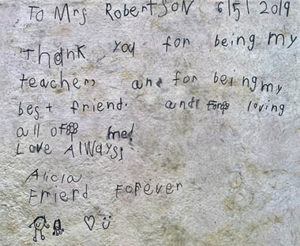 To Mrs RobertsoN 6/5/2019
Thank you for being my
teacher, and for being my
best friend. and loving
all of me!
Love Always,
Alicia
Frierd Forever